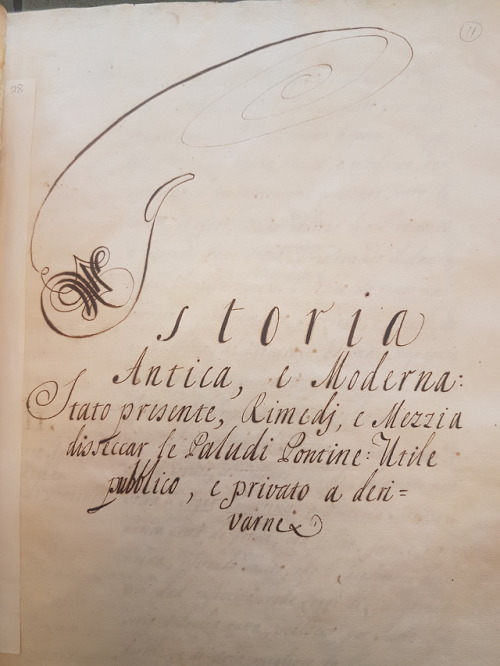 11
28
Istoria
Antica, e Moderna:
Stato presente, Rimedj, e Mezzi a
disseccar le Paludi Pontine: Utile
pubblico, e privato a deri=
varne